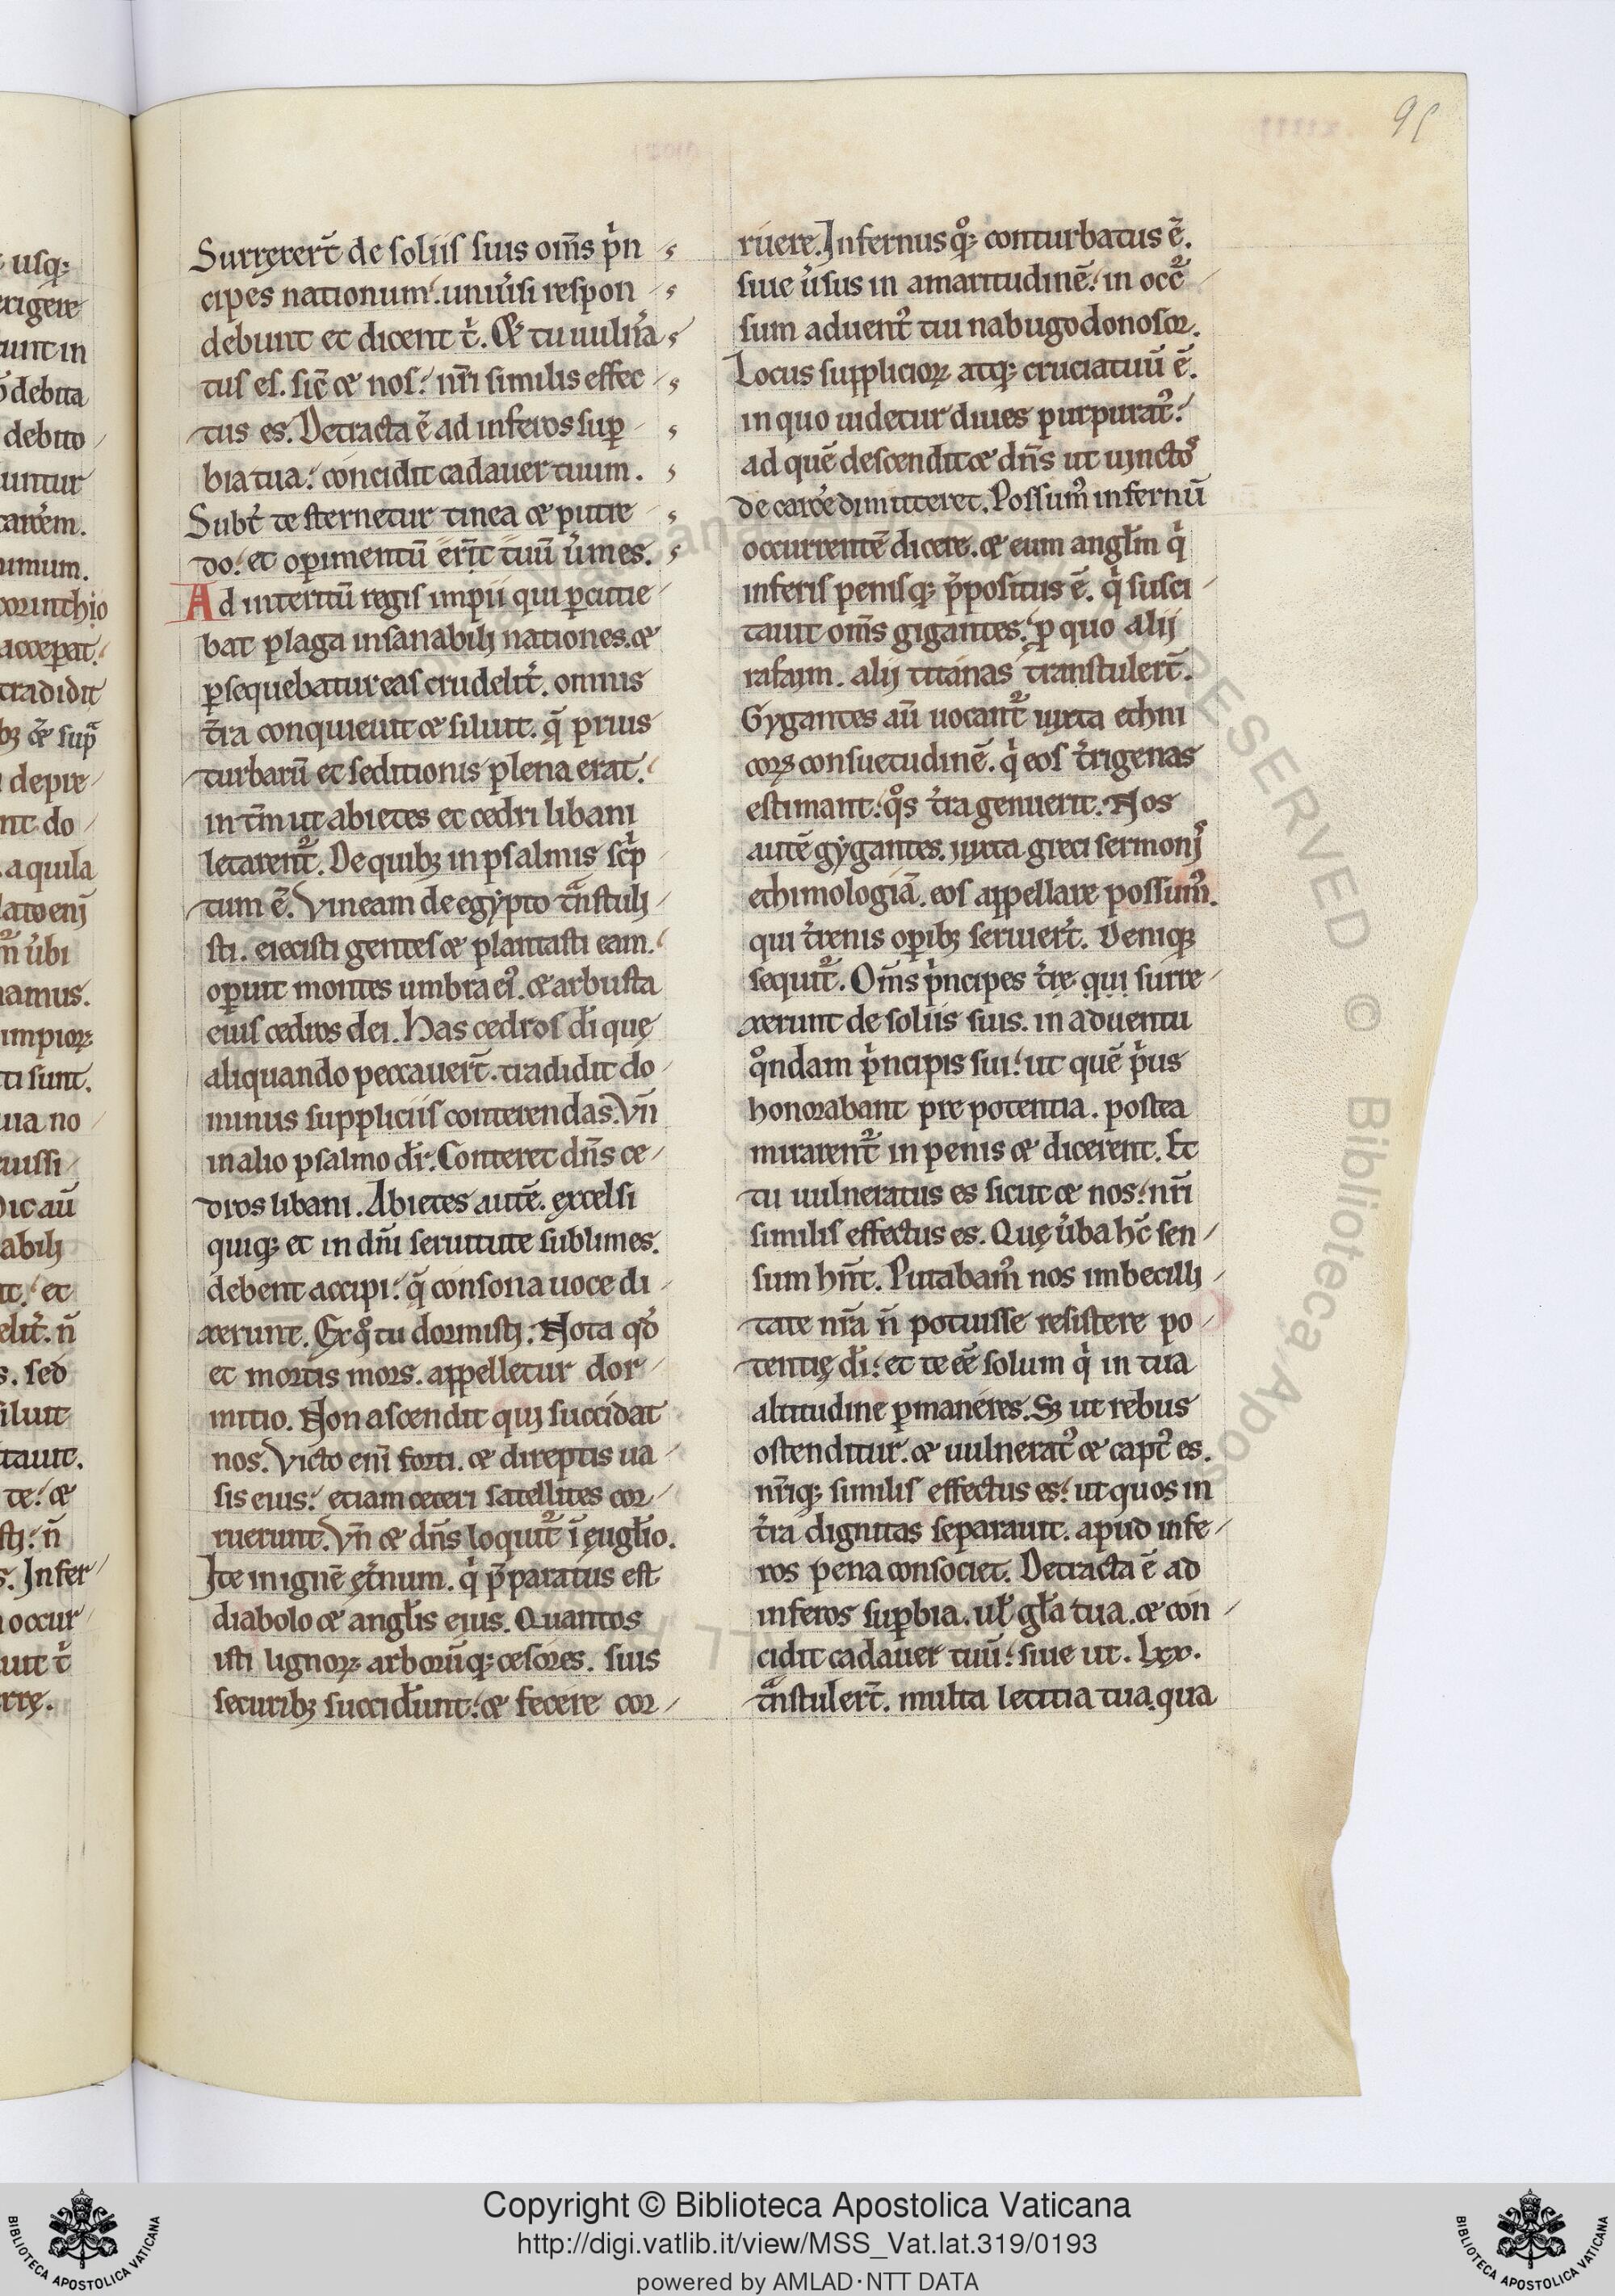 95
Surrexert̄ de soliis suis om̄s p̓n
cipes nationum. uniu̓si respon
debunt et dicent t̓. Et tu uuln̓a
tus es. sic̄ et nos. nr̄i similis effec
tus es. Detracta ē ad inferos sup̱
bia tua. concidit cadauer tuum.
Subt̓ te sternetur tinea et putre
do. et operimentū erit̄ tuū u̓mes.
Ad interitū regis impii qui p̱cutie
bat plaga insanabili nationes. et
p̱sequebatur eas crudelit̓. omnis
t̓ra conquieuit et siluit. q̄ prius
turbarū et seditionis plena erat.
in tm̄ ut abietes et cedri libani
letarent᷑. De quibꝫ in psalmis sc̓p
tum ē. Vineam de egypto t̄nstuli
sti. eiecisti gentes et plantasti eam.
operuit montes umbra ei᷒. et arbusta
eius cedros dei. Has cedros di̅ quę
aliquando peccauert̄. tradidit do
minus suppliciis conterendas. Vn̄
in alio psalmo dr̄. Conteret dn̄s ce
dros libani. Abietes autē. excelsi
quiqꝫ et in dn̄i seruitute sublimes.
debent accipi. q̄ consona uoce di
xerunt. Ex qo tu dormisti. Nota qđ
et mortis mors. appelletur dor
mitio. Non ascendit qui succidat
nos. Victo eni̅ forti. et direptis ua
sis eius. etiam ceteri satellites cor
ruerunt. Vn̄ et dn̄s loquit᷑ ī euglio̅.
Ite in ignē et̓num. q̓ p̄paratus est
diabolo et angl̄is eius. Quantos
isti lignoꝝ arborūqꝫ cesores. suis
securibꝫ succider̄unt. et fecere cor
ruere. Infernus qoꝫ conturbatus ē.
siue u̓sus in amaritudinē. in occ̄
sum aduent᷒ tui nabugodonosor.
Locus supplicioꝝ atqꝫ cruciatuū ē.
in quo uidetur diues purpurat᷒.
ad quē descendit et dn̄s ut uinctos
de carc̓e dimitteret. Possum᷒ infernū
occurrentē dicere. et eum angl̄m q̓
inferis penisqꝫ p̄positus ē. q̓ susci
tauit om̄s gigantes. p̱ quo alij
rafaim. alij titanas transtulert̄.
Gygantes aū uocant᷑ iuxta ethni
coꝝ consuetudinē. q̓ eos t̓rigenas
estimant. qos t̓ra genuerit. Nos
autē gygantes. iuxta greci sermonis
ethimologiā. eos appellare possum᷒.
qui t̓renis operibꝫ seruiert̄. Deniqꝫ
sequit᷑. Om̄s p̓ncipes t̓re. qui surre
xerunt de soliis suis. in aduentu
qondam p̓ncipis sui. ut quē p̓us
honorabant pre potentia. postea
mirarent᷑ in penis et dicerent. Et
tu uulneratus es sicut et nos. nr̄i
similis effectus es. Quę u̓ba hc̄ sen
sum hn̄t. Putabam᷒ nos imbecilli
tate nr̄a n̄ potuisse resistere po
tentię di̅. et te eē solum q̓ in tua
altitudine p̱maneres. Sꝫ ut rebus
ostenditur. et uulnerat᷒ et capt᷒ es.
nr̄iqꝫ similis effectus es. ut quos in
t̓ra dignitas separauit. apud infe
ros pena consociet. Detracta ē ad
inferos sup̱bia. ul̄ gl̄a tua. et con
cidit cadauer tuū. siue ut. lxx.
t̄nstulert̄. multa letitia tua. qua
Copyright © Biblioteca Apostolica Vaticana
http://digi.vatlib.it/view/MSS_Vat.lat.319/0193
powered by AMLAD·NTT DATA
BIBLIOTECA APOSTOLICA VATICANA
BIBLIOTECA APOSTOLICA VATICANA